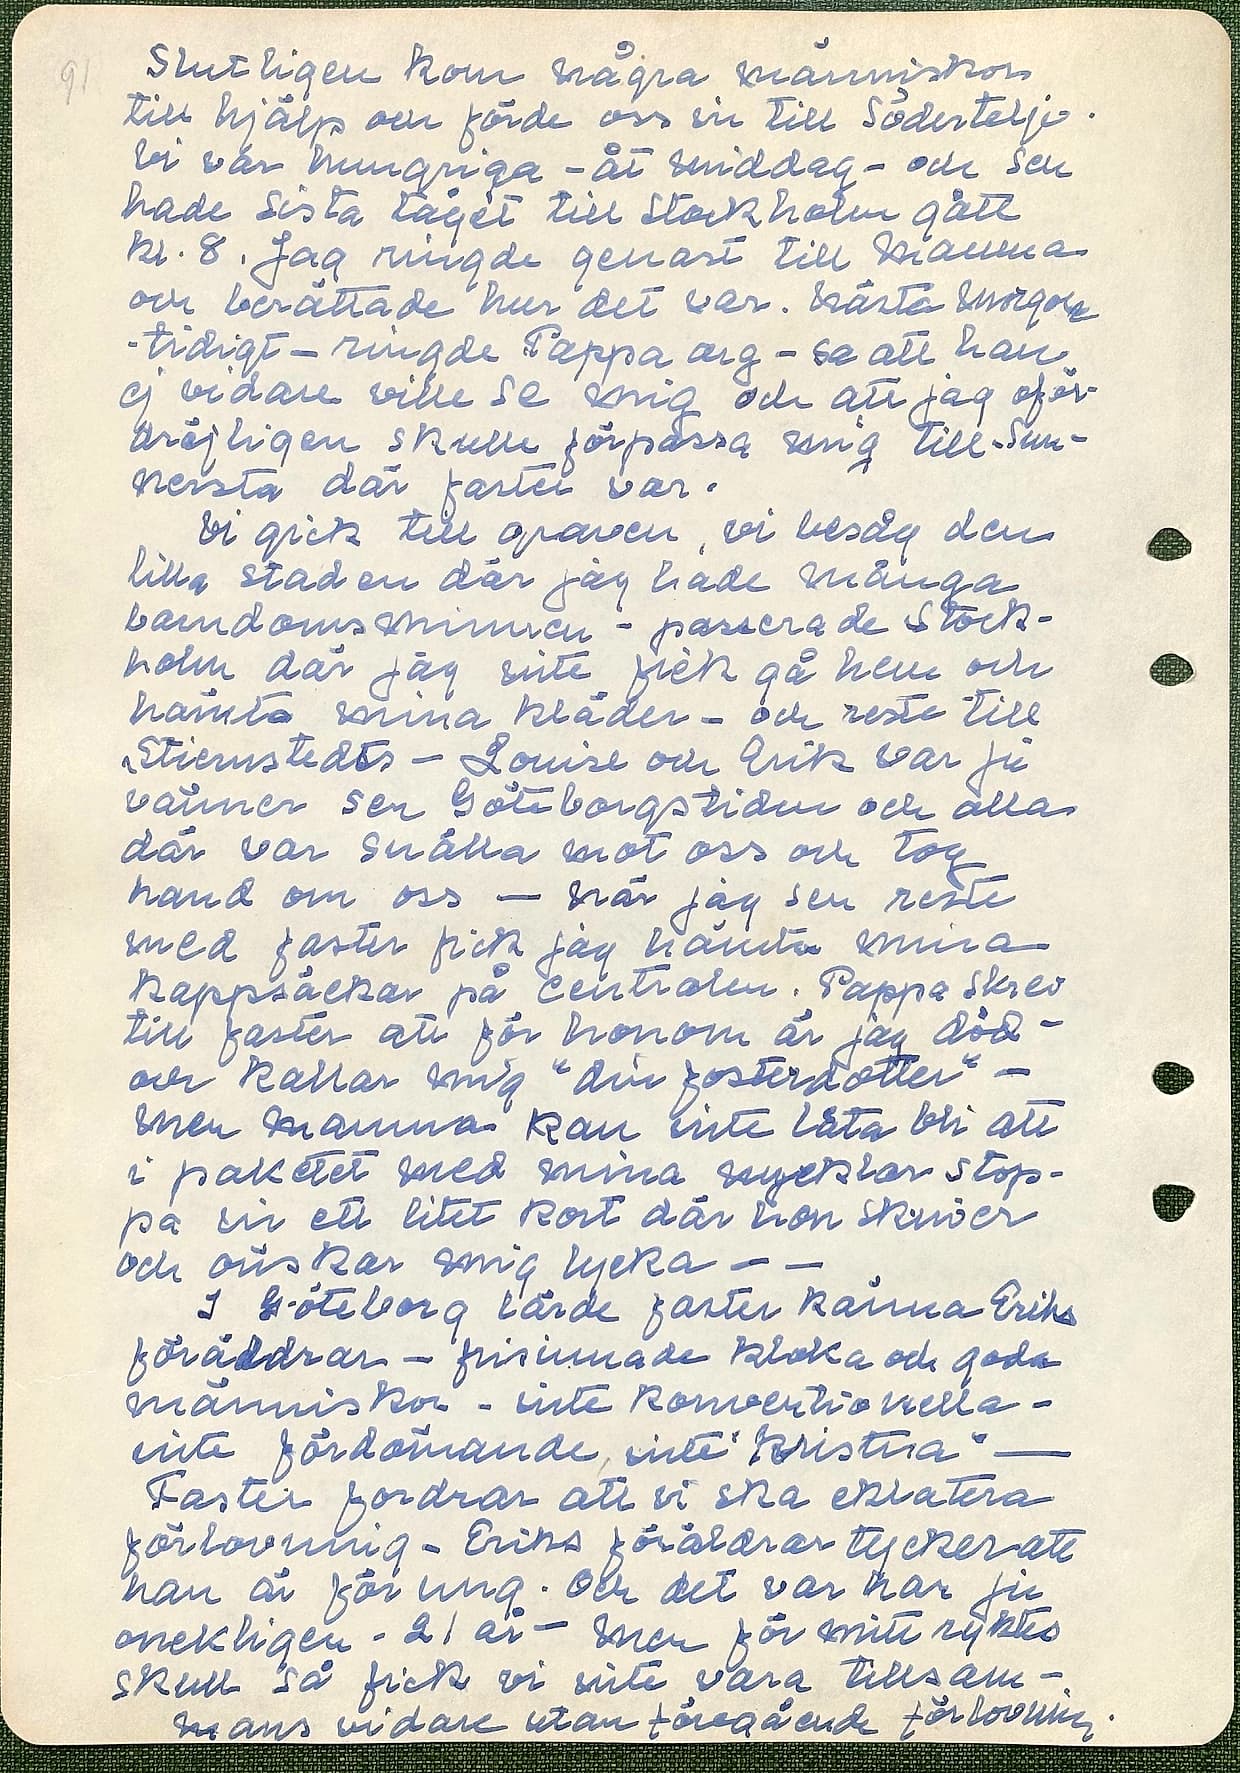 91
Slutligen kom några människor
till hjälp och förde oss in till Södertelje.
Vi var hungriga – åt middag – och sen
hade sista tåget till Stockholm gått
kl. 8. Jag ringde genast till Mamma
och berättade hur det var. Nästa morgon
- tidigt – ringde Pappa arg – sa att han
ej vidare ville se mig och att jag oför-
dröjligen skulle förpassa mig till Sun-
nersta där faster var.
Vi gick till graven, vi besåg den
lilla staden där jag hade många
barndomsminnen – passerade Stock-
holm där jag inte fick gå hem och
hämta mina kläder – och reste till
Stiernstedts – Louise och Erik var ju
vänner sen Göteborgstiden och alla
där var snälla mot oss och tog
hand om oss — när jag sen reste
med faster fick jag hämta mina
kappsäckar på Centralen. Pappa skrev
till faster att för honom är jag död –
och kallar mig "din fosterdotter" –
men mamma kan inte låta bli att
i paketet med mina nycklar stop-
pa in ett litet kort där hon skriver
och önskar mig lycka – –
I Göteborg lärde faster känna Eriks
föräldrar – frisinnade kloka och goda
människor – inte konventionella –
inte fördömande, inte "kristna" —
Faster fordrar att vi ska eklatera
förlovning – Eriks föräldrar tycker att
han är för ung. Och det var han ju
onekligen – 21 år – men för mitt ryktes
skull så fick vi inte vara tillsam-
mans vidare utan föregående förlovning.